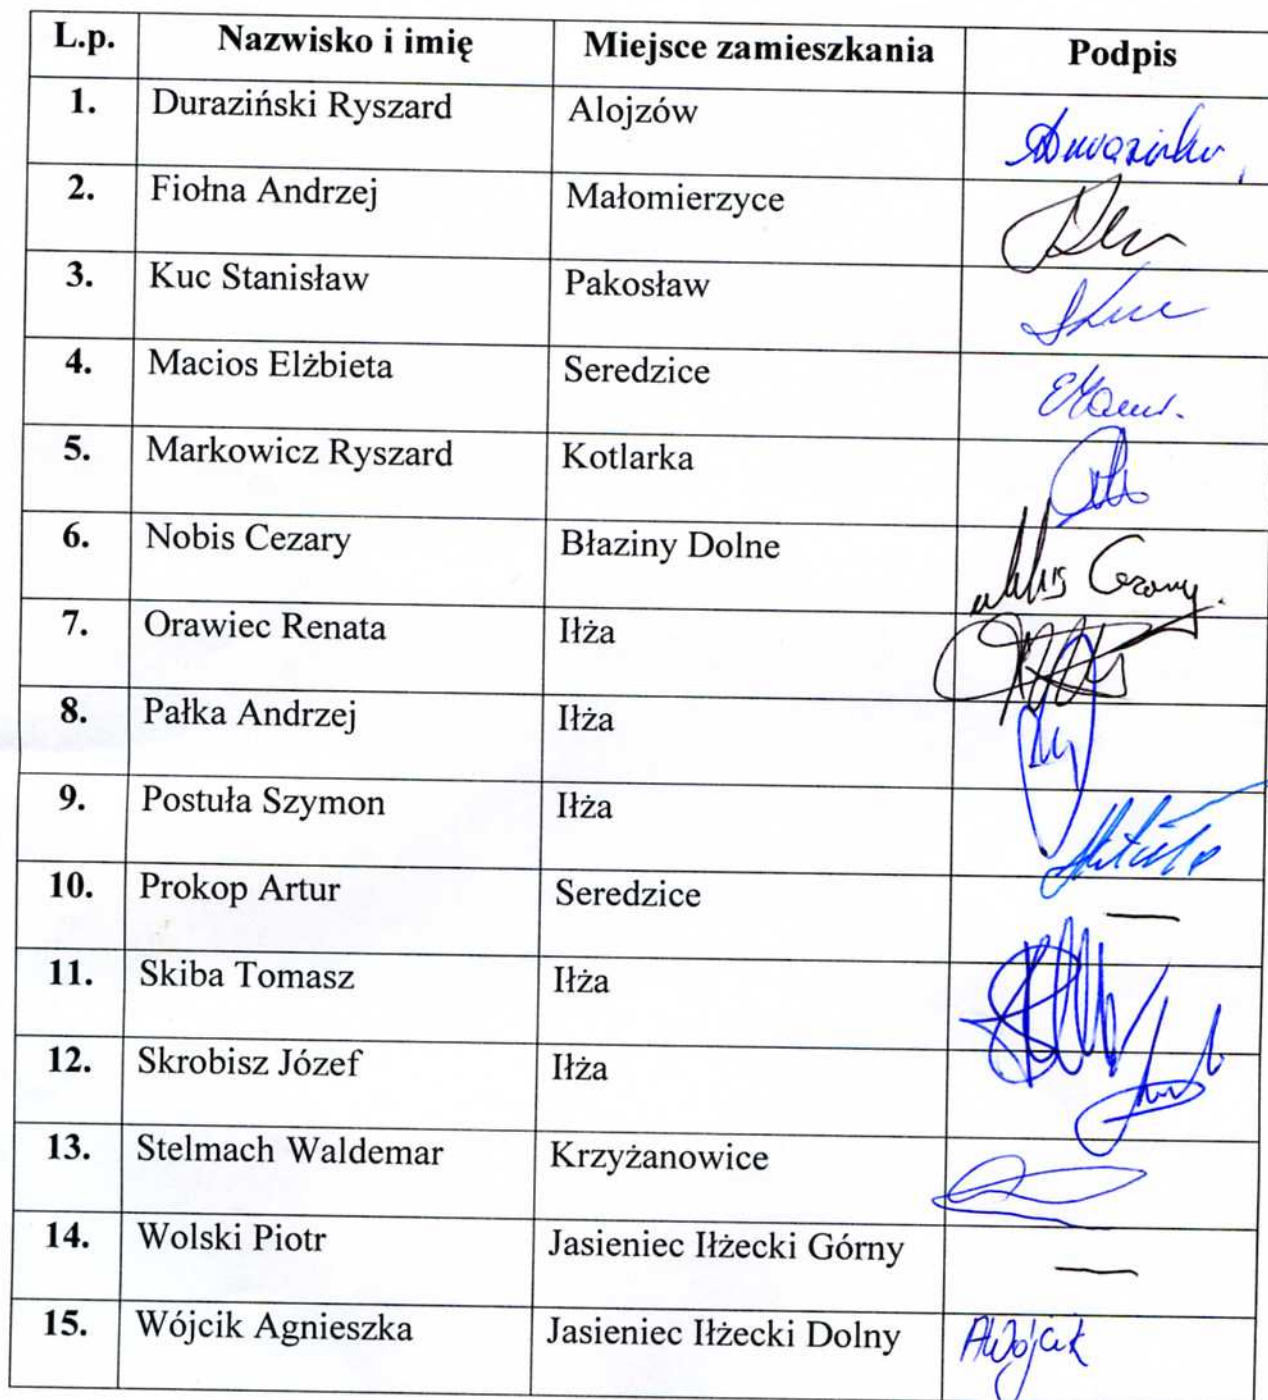 L.p. Nazwisko i imię Miejsce zamieszkania Podpis
1. Duraziński Ryszard Alojzów
2. Fiołna Andrzej Małomierzyce
3. Kuc Stanisław Pakosław SKuc
4. Macios Elżbieta Seredzice
5. Markowicz Ryszard Kotlarka
6. Nobis Cezary Błaziny Dolne Nobis Cezary.
7. Orawiec Renata Iłża
8. Pałka Andrzej Iłża
9. Postuła Szymon Iłża
10. Prokop Artur Seredzice —
11. Skiba Tomasz Iłża
12. Skrobisz Józef Iłża
13. Stelmach Waldemar Krzyżanowice
14. Wolski Piotr Jasieniec Iłżecki Górny —
15. Wójcik Agnieszka Jasieniec Iłżecki Dolny AWójcik